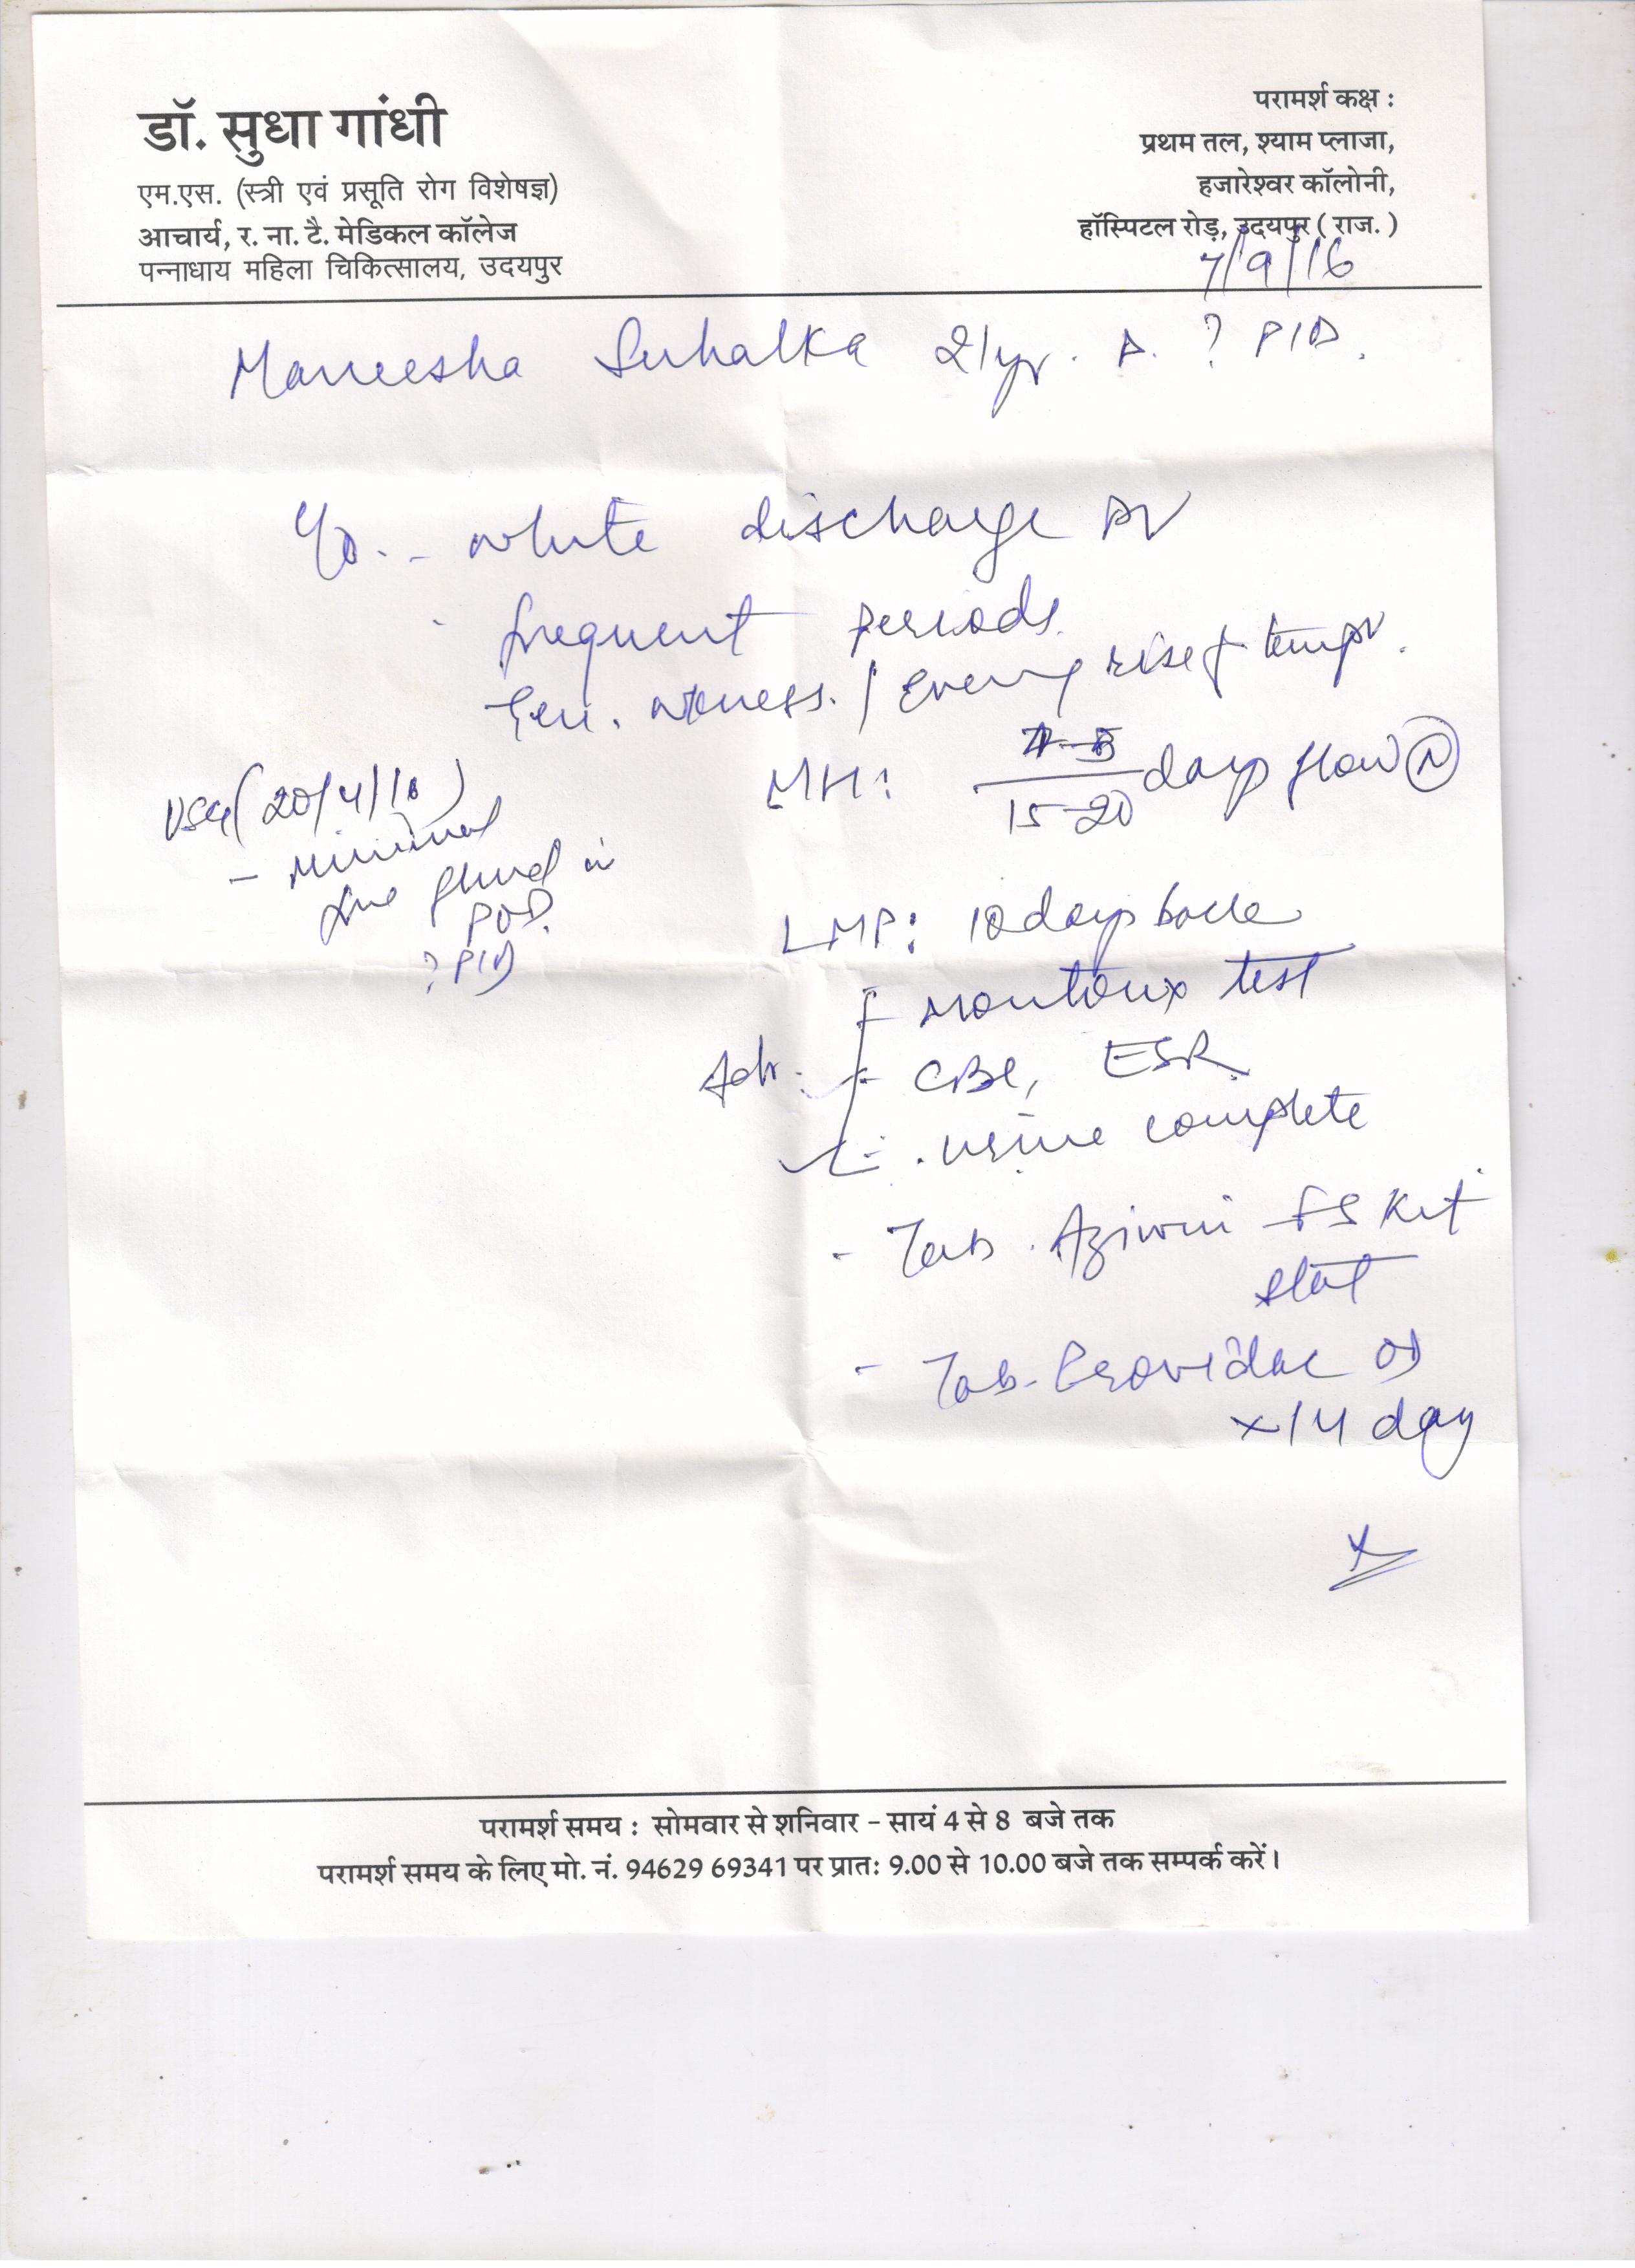 डॉ. सुधा गांधी
एम.एस. (स्त्री एवं प्रसूति रोग विशेषज्ञ)
आचार्य, र. ना. टै. मेडिकल कॉलेज
पन्नाधाय महिला चिकित्सालय, उदयपुर
परामर्श कक्ष :
प्रथम तल, श्याम प्लाजा,
हजारेश्वर कॉलोनी,
हॉस्पिटल रोड़, उदयपुर ( राज. )
7/9/16
Maneesha Suhalka 21yr. ? PID.
C/o. - white discharge PV
frequent periods.
Gen. / Evening rise of tempr.
MH: days flow N
15-20
USG (20/4/16)
- Minimal
free fluid in
POD.
? PID
LMP: 10 days back
Adv. - Montoux test
- CBC, ESR
- urine complete
- Tab. Aziwin FS Kit
stat
- Tab. Providac OD
x 14 day
परामर्श समय : सोमवार से शनिवार - सायं 4 से 8 बजे तक
परामर्श समय के लिए मो. नं. 94629 69341 पर प्रातः 9.00 से 10.00 बजे तक सम्पर्क करें।